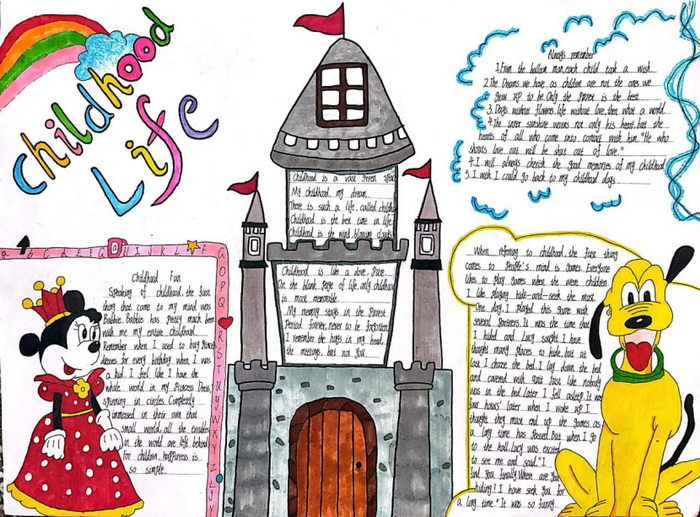 Childhood
Life
Always remember
1. From the balloon man, each child took a wish
2. The Dreams we have as children are not the ones we
grow up to be. Only the purest is the best.
3. Days without flowers, life without love, then what a world
4. The inner sunshine warms not only his heart, but the
hearts of all who come into contact with him. "He who
shouts love out will be shut out of love."
4. I will always cherish the good memories of my childhood
5. I wish I could go back to my childhood days
Childhood is a vast green
My childhood, my dream
There is such a life, called
Childhood is the best time in life
Childhood is the wind blowing clouds
Childhood is like a dove, pure
On the blank page of life, only childhood
is most memorable
My memory stays in the purest
Period forever, never to be forgotten.
I remember the hats in my head,
the meetings, but not you
O P Q R S T U V W X Y Z
Childhood Fun
Speaking of childhood, the first
thing that came to my mind was
Barbie. Barbie has pretty much been
with me my entire childhood.
Remember when I used to buy
dresses for every birthday when I was
a kid. I feel like I have the
whole world in my Princess Dress
spinning in circles. Completely
immersed in their own that
small world, all the troubles
in the world are left behind
For children, happiness is
so simple.
When referring to childhood, the first thing
comes to people's mind is games. Everyone
likes to play games when we were children.
I like playing hide-and-seek the most.
One day, I played this game with
several partners. It was the time that
I hided and Lucy sought. I have
thought many places to hide, but at
last I chose the bed. I lay down the bed
and covered with quilt just like nobody
was in the bed. Later I fell asleep. It was
four hours later when I woke up. I
thought they must end up the games as
a long time has passed. But when I go
to the hall, Lucy was excited
to see me and said, "I
find you finally. Where are you
hiding? I have seek you for
a long time." It was so funny.